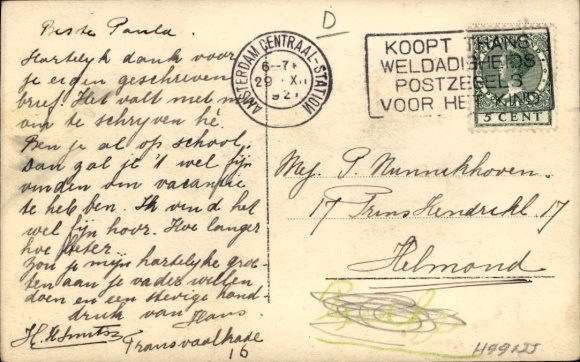 Beste Paula.
Hartelijk dank voor
je eigen geschreven
brief. Het valt met mee
om te schrijven hè.
Ben je al op school,
dan zal je 't wel fijn
vinden om vacantie
te hebben. Ik vind het
wel fijn hoor. Hoe langer
hoe beter.
Zou je mijn hartelijke groe-
ten aan je vader willen
doen en een stevige hand-
druk van Hans.
Transvaalkade
16
D
AMSTERDAM CENTRAAL-STATION
29 XII
KOOPT THANS
WELDADIGHEIDS
POSTZEGELS
VOOR HET KIND
5 CENT
Mej. P. Nunnikhoven.
17 Prins Hendrikl 17
Helmond